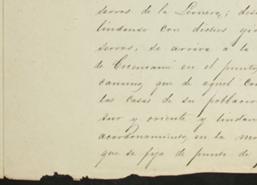 serros de la Leonera; des
lindando con distios
serros, se arriva a la
de en el punto
camino, que de aquel con
las casas de su poblacion
sur y oriente y lindan
acordonamiento, en la
que se fija de punto de